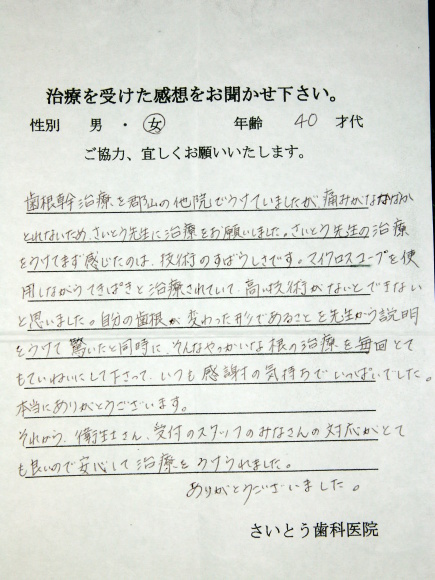 治療を受けた感想をお聞かせ下さい。
性別 男 ・ 女 年齢 40 才代
ご協力、宜しくお願いいたします。
歯根幹治療を郡山の他院でうけていましたが、痛みがなかなか
とれないため、さいとう先生に治療をお願いしました。さいとう先生の治療
をうけてまず感じたのは、技術のすばらしさです。マイクロスコープを使
用しながらてきぱきと治療されていて、高い技術がないとできない
と思いました。自分の歯根が変わった形であることを先生から説明
をうけて驚いたと同時に、そんなやっかいな根の治療を毎回とて
もていねいにして下さって、いつも感謝の気持ちでいっぱいでした。
本当にありがとうございます。
それから、衛生士さん、受付のスタッフのみなさんの対応がとて
も良いので安心して治療をうけられました。
ありがとうございました。
さいとう歯科医院